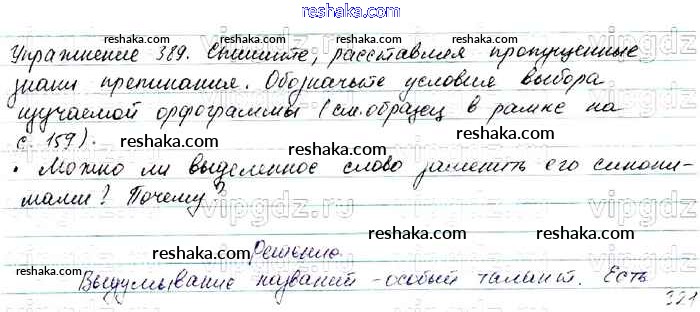 reshaka.com
Упражнение 389. Спишите, расставляя пропущенные
reshaka.com reshaka.com
знаки препинания. Обозначьте условия выбора
изучаемой орфограммы (см. образец в рамке на
reshaka.com reshaka.com reshaka.com
с. 159).
• Можно ли выделенное слово заменить его синони-
reshaka.com reshaka.com reshaka.com
мами? Почему?
vipgdz.ru vipgdz
reshaka.com reshaka.com reshaka.com
Решение.
Выдумывание названий - особый талант. Есть
reshaka.com reshaka.com reshaka.com
321